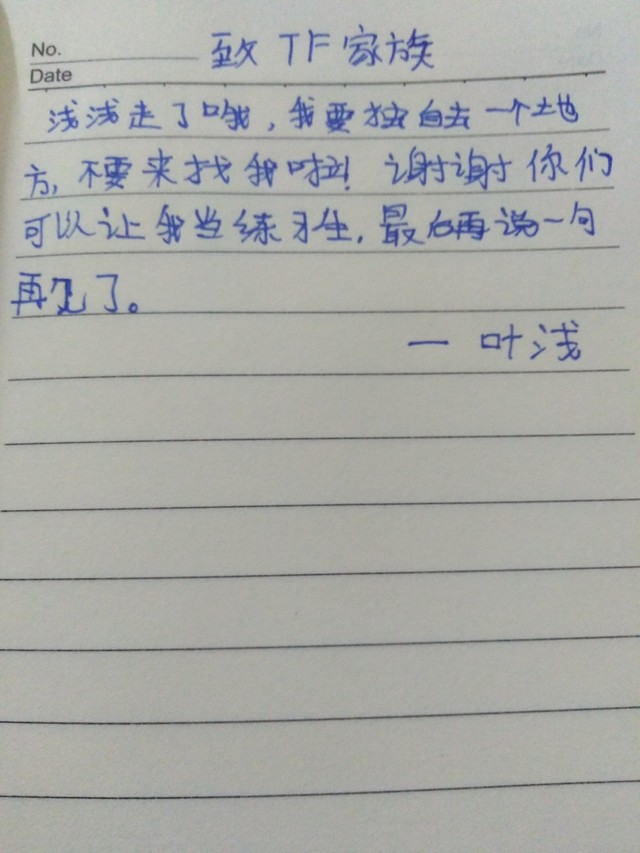 No.
致TF家族
Date
浅浅走了哦，我要独自去一个地
方，不要来找我啦！谢谢你们
可以让我当练习生，最后再说一句
再见了。
— 叶浅